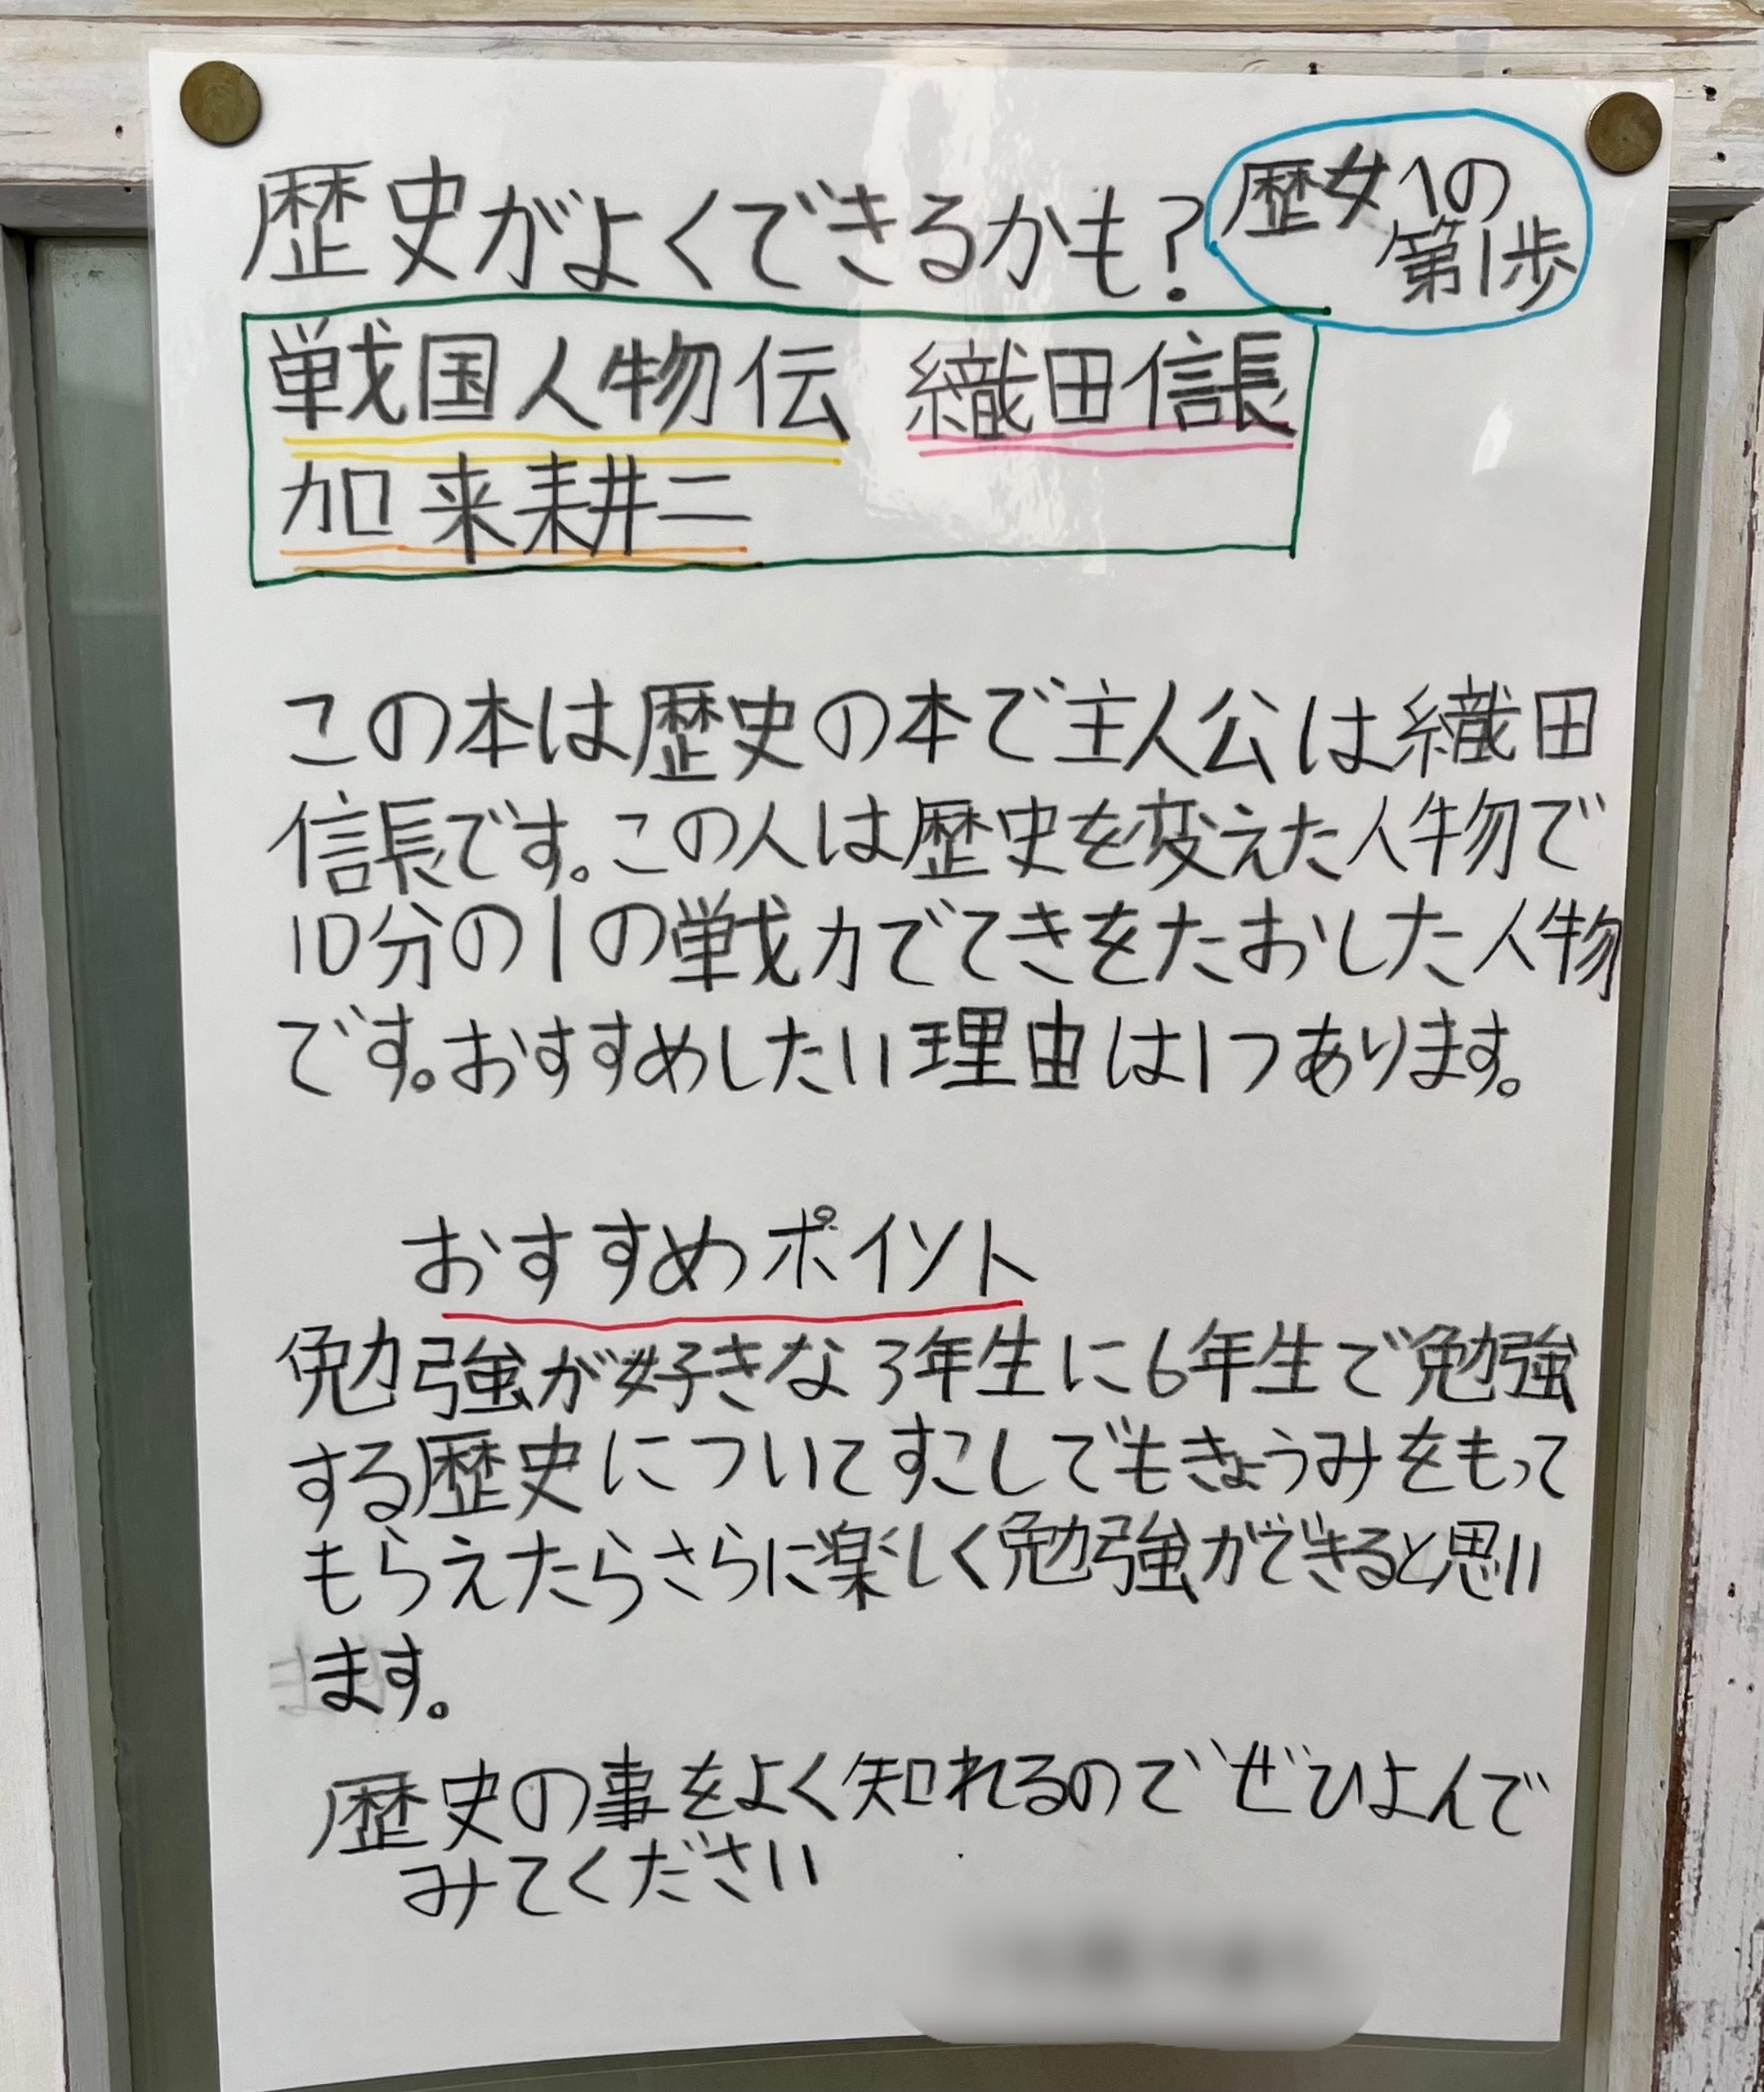 歴史がよくできるかも?
歴女への
第1歩
戦国人物伝 織田信長
加来耕二
この本は歴史の本で主人公は織田
信長です。この人は歴史を変えた人物で
10分の1の戦力でてきをたおした人物
です。おすすめしたい理由は1つあります。
おすすめポイント
勉強が好きな3年生に6年生で勉強
する歴史についてすこしでもきょうみをもって
もらえたらさらに楽しく勉強ができると思い
ます。
歴史の事をよく知れるのでぜひよんで
みてください